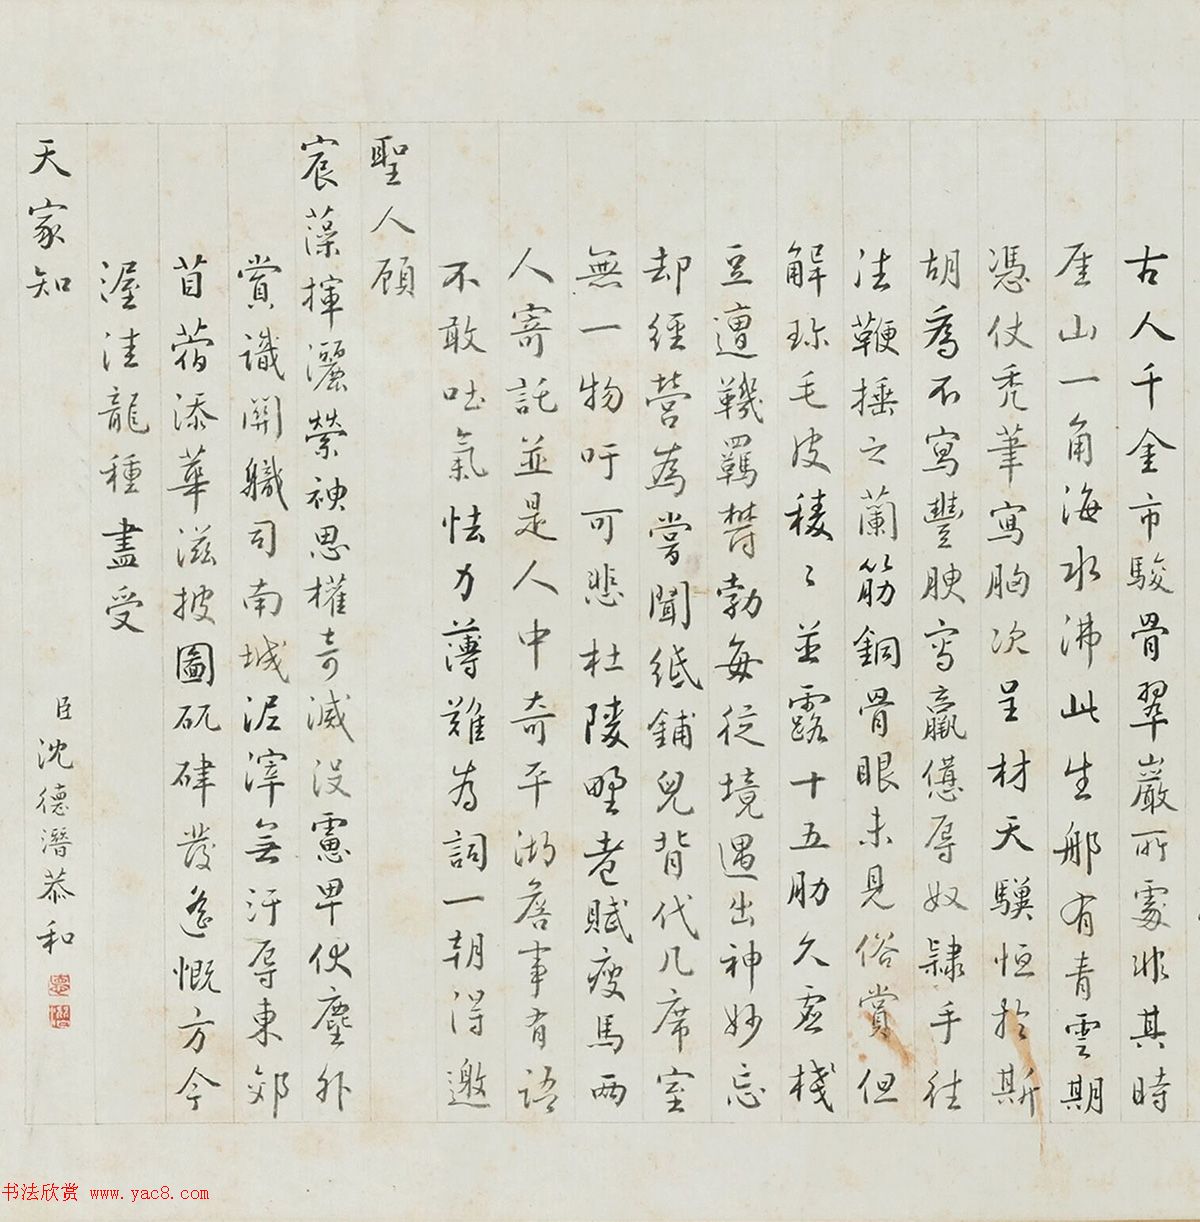 古人千金市駿骨翠巖所處非其時
厓山一角海水沸此生那有青雲期
憑仗禿筆寫胸次呈材天驥恒於斯
胡為不寫豐腴寫羸憊辱奴隸手往
往鞭捶之蘭筋銅骨眼未見俗賞但
解珎毛皮稜〻並露十五肋久忘棧
豆遭鞿羈鬱勃每從境遇出神妙忘
却經營為嘗聞紙鋪兒背代几席室
無一物吁可悲杜陵野老賦瘦馬兩
人寄託並是人中奇平湖詹事有語
不敢吐氣怯力薄難為詞一朝得邀
聖人顧
宸藻揮灑縈神思權奇滅没慮早伙塵外
賞識關職司南城泥滓無汙辱東郊
苜蓿添華滋披圖矹硉發遙慨方今
渥洼龍種盡受
天家知
臣沈德潛恭和
书法欣赏 www.yac8.com